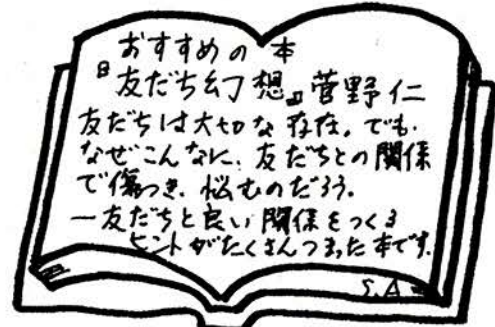 おすすめの本
『友だち幻想』菅野仁
友だちは大切な存在。でも、
なぜこんなに、友だちとの関係
で傷つき、悩むのだろう。
―友だちと良い関係をつくる
ヒントがたくさんつまった本です。
S.A